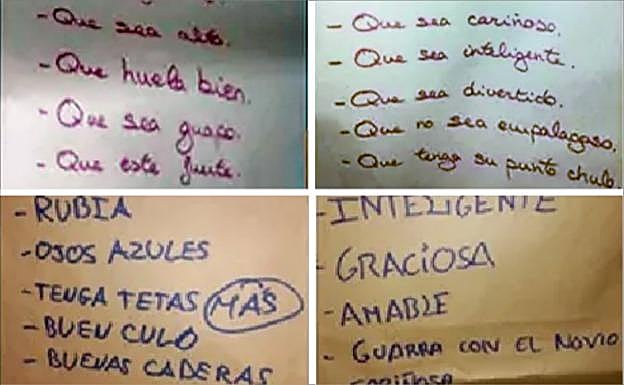 - Que sea alto.
- Que huela bien.
- Que sea guapo.
- Que este fuerte.
- Que sea cariñoso.
- Que sea inteligente.
- Que sea divertido.
- Que no sea empalagoso.
- Que tenga su punto chulo
- RUBIA
- OJOS AZULES
- TENGA TETAS MÁS
- BUEN CULO
- BUENAS CADERAS
- INTELIGENTE
- GRACIOSA
- AMABLE
- GUARRA CON EL NOVIO
CARIÑOSA